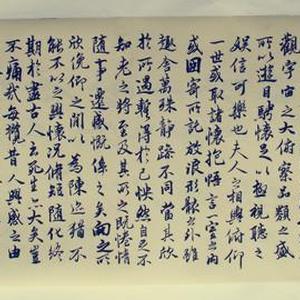 觀宇宙之大俯察品類之盛
所以遊目騁懷足以極視聽之
娛信可樂也夫人之相與俯仰
一世或取諸懷抱悟言一室之內
或因寄所託放浪形骸之外雖
趣舍萬殊靜躁不同當其欣
於所遇暫得於己怏然自足不
知老之將至及其所之既惓情
隨事遷感慨係之矣向之所
欣俛仰之間以為陳迹猶不
能不以之興懷況脩短隨化終
期於盡古人云死生亦大矣豈
不痛哉每攬昔人興感之由